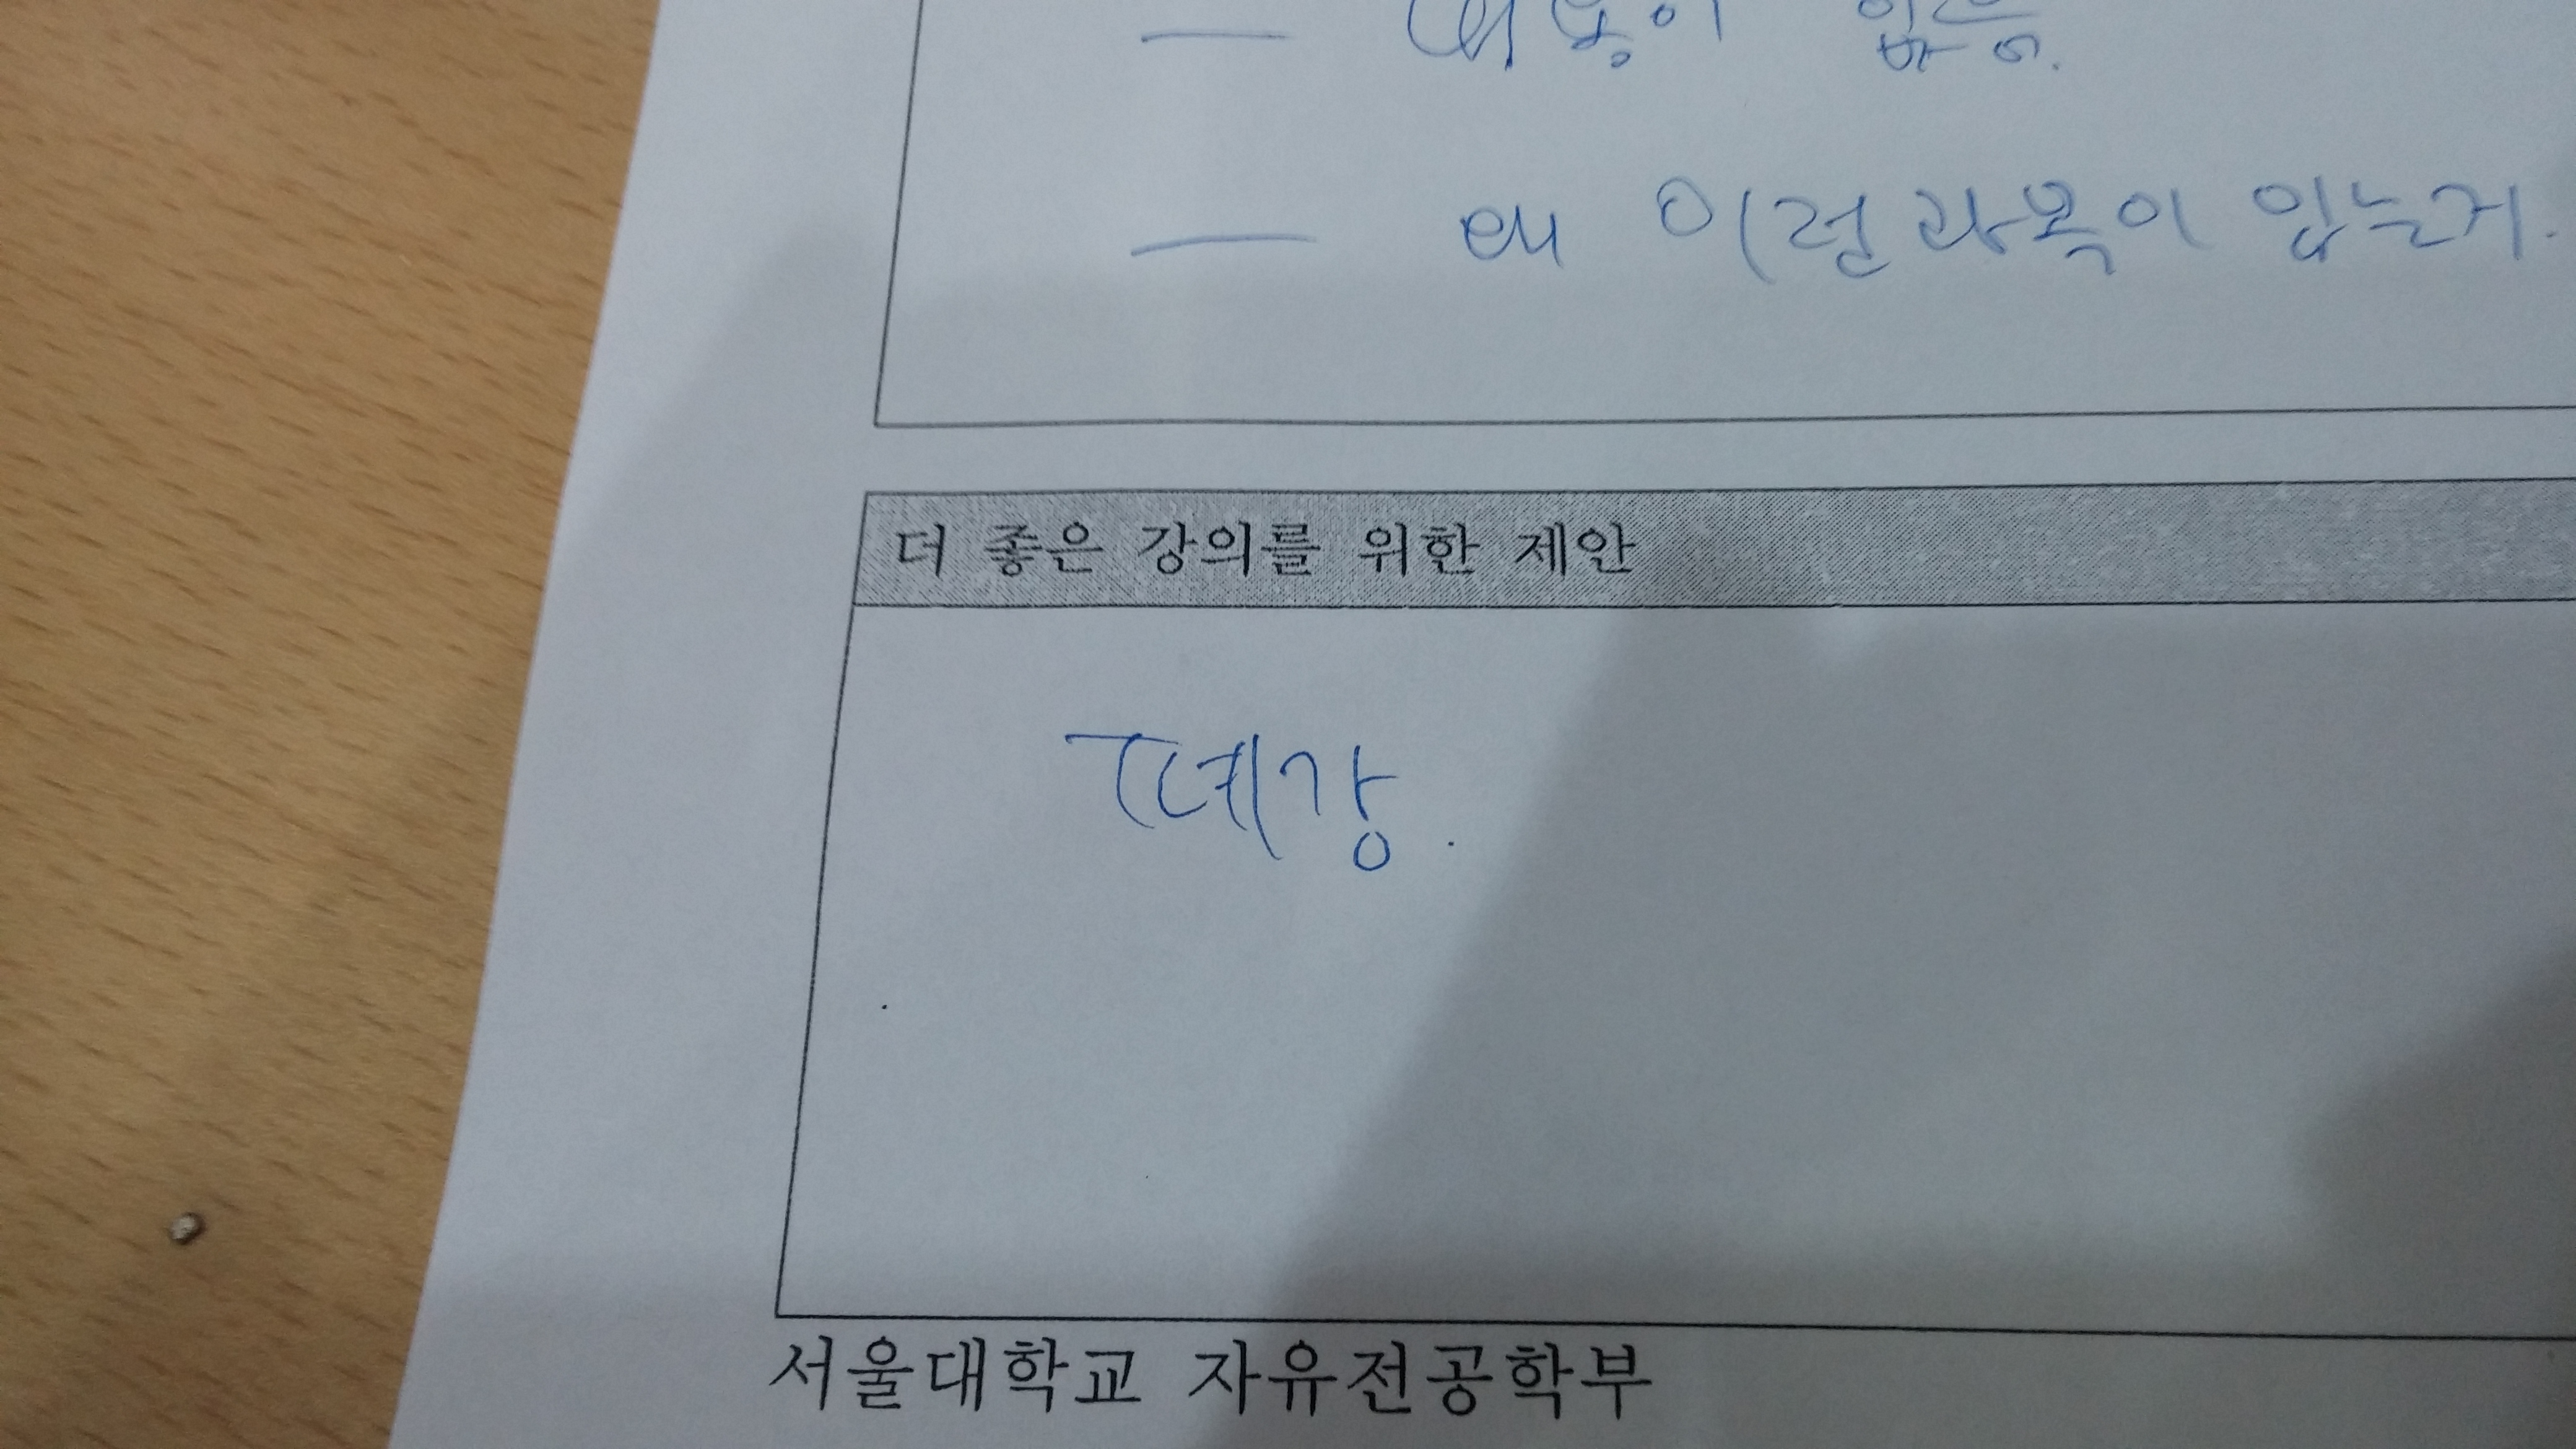 — 내용이 없음.
— 왜 이런 과목이 있는거.
더 좋은 강의를 위한 제안
폐강.
서울대학교 자유전공학부